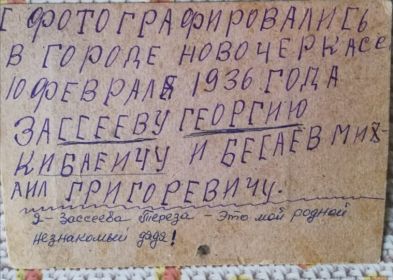 Г ФОТОГРАФИРОВАЛИСЬ
В ГОРОДЕ НОВОЧЕРКАСЕ
10 ФЕВРАЛЯ 1936 ГОДА
ЗАССЕЕВУ ГЕОРГИЮ
КИБАЕИЧУ И БЕСАЕВ МИХ-
АИЛ ГРИГОРЕВИЧУ.
Я - Зассеева Тереза - Это мой родной
незнакомый дядя!